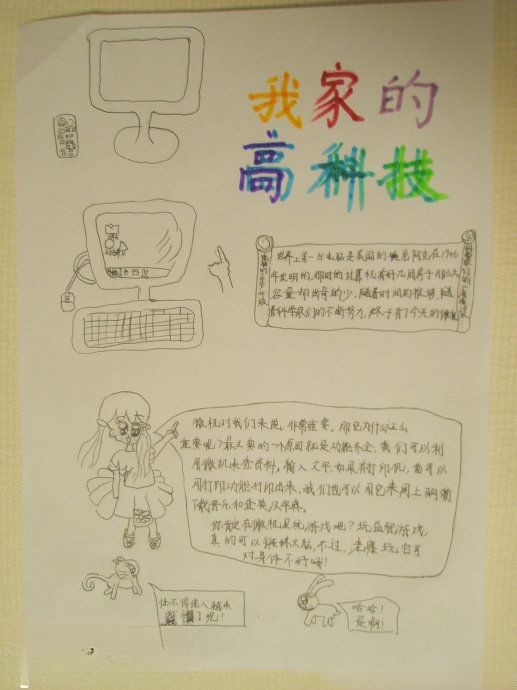 我家的
高科技
世界上第一台电脑是美国的 尼阿克在1946
年发明的,那时的计算机有好几间房子那么大
容量却出奇的少。随着时间的推移,随
着科学家们的不断努力,终于有了今天的微机
微机对我们来说,非常重要。那它为什么这么
重要呢?最主要的一个原因就是功能齐全。我们可以利
用微机来查资料,输入文字,如果有打印机,也可以
用打印功能打印出来。我们也可以用它来网上购物
下载音乐和查英汉字典。
你肯定在微机里玩游戏吧?玩益智游戏,
真的可以锻炼大脑,不过,老爱玩它可
对身体不好哟!
怪不得猫人越来
越懂了呢!
哈哈!
是啊!